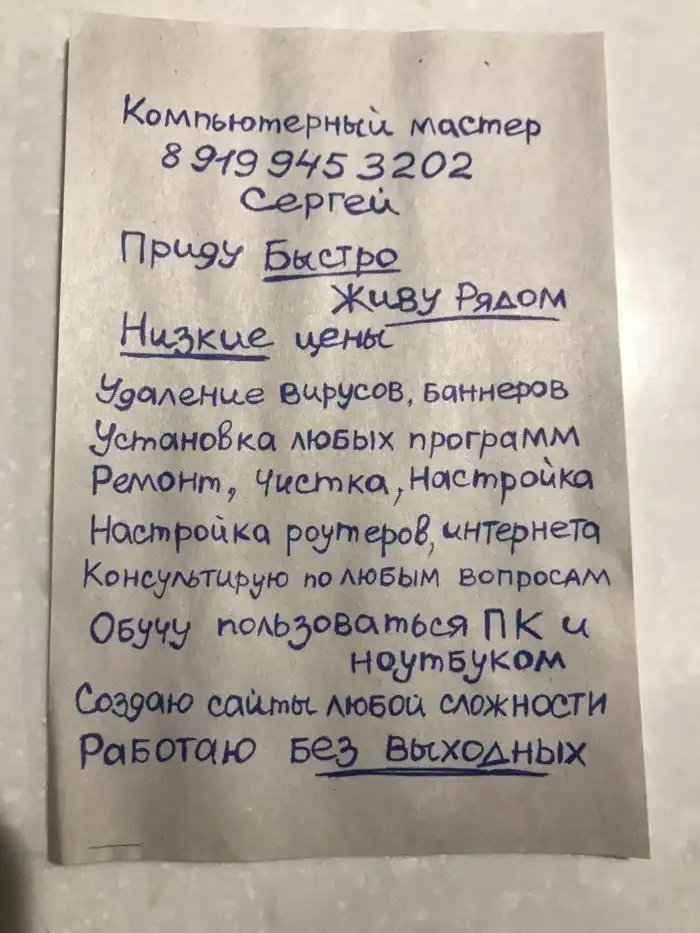 Компьютерный мастер
8 919 945 3202
Сергей
Приду Быстро
Живу Рядом
Низкие цены
Удаление вирусов, баннеров
Установка любых программ
Ремонт, Чистка, Настройка
Настройка роутеров, интернета
Консультирую по любым вопросам
Обучу пользоваться ПК и
ноутбуком
Создаю сайты любой сложности
Работаю без выходных